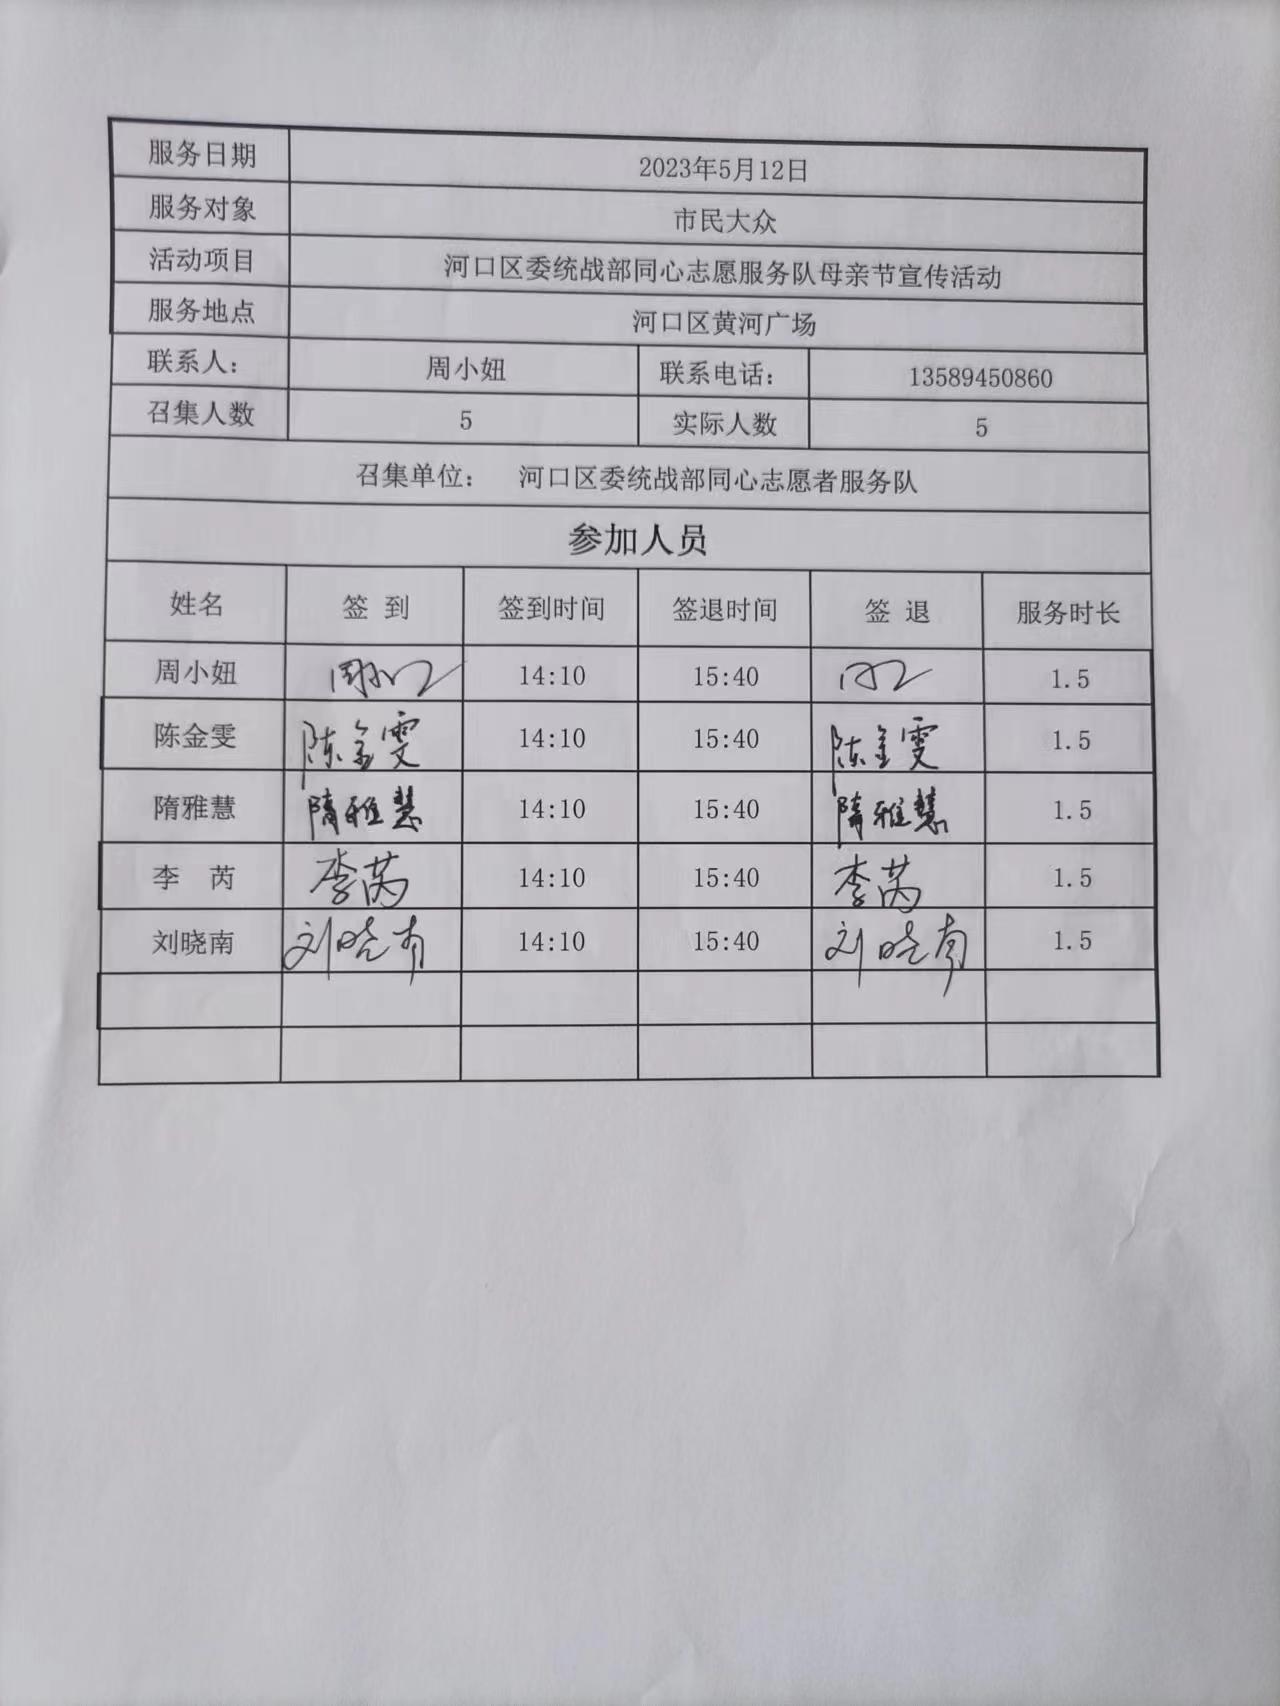 服务日期 2023年5月12日
服务对象 市民大众
活动项目 河口区委统战部同心志愿服务队母亲节宣传活动
服务地点 河口区黄河广场
联系人： 周小妞 联系电话： 13589450860
召集人数 5 实际人数 5
召集单位： 河口区委统战部同心志愿者服务队
参加人员
姓名 签 到 签到时间 签退时间 签 退 服务时长
周小妞 14:10 15:40 1.5
陈金雯 陈金雯 14:10 15:40 陈金雯 1.5
隋雅慧 隋雅慧 14:10 15:40 隋雅慧 1.5
李 芮 李芮 14:10 15:40 李芮 1.5
刘晓南 刘晓南 14:10 15:40 刘晓南 1.5